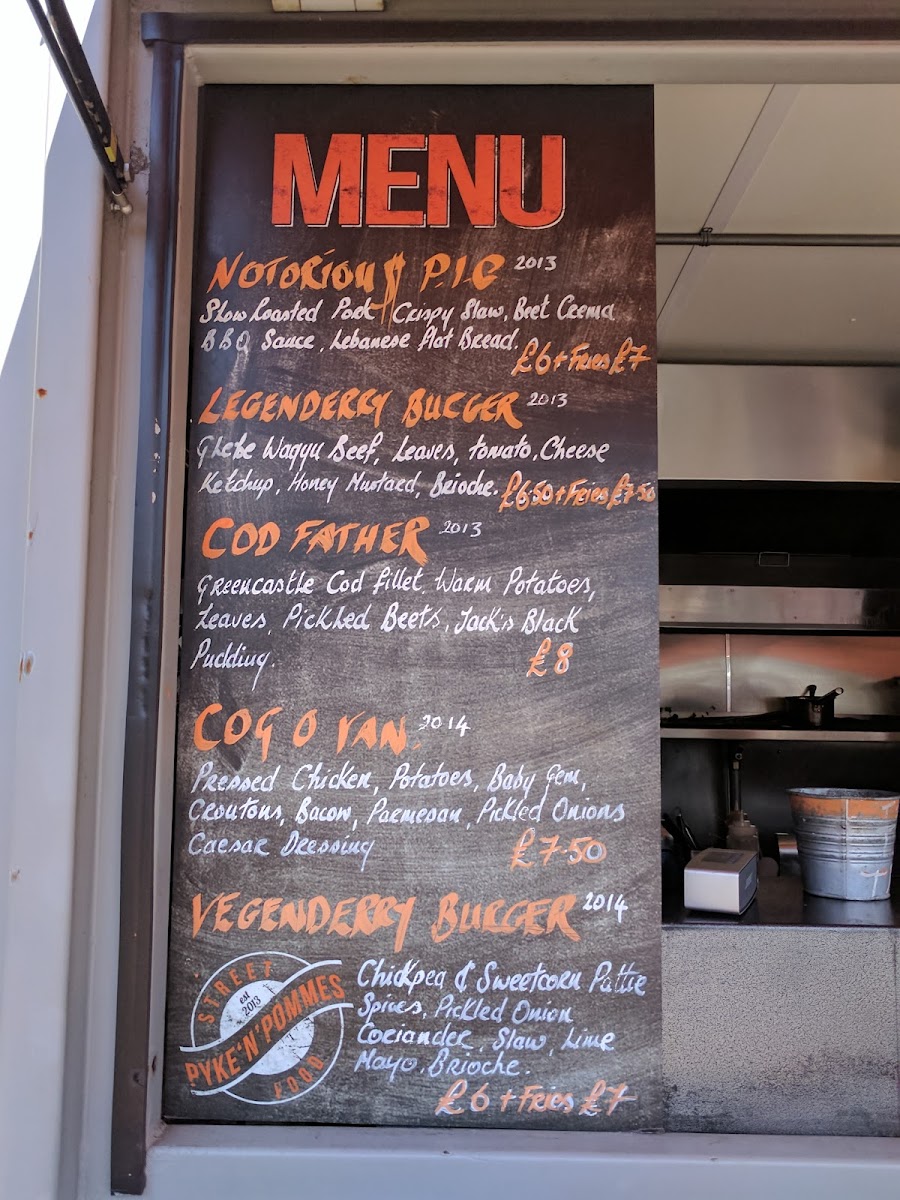 MENU
NOTORIOU$ P.I.G 2013
Slow Roasted Pork, Crispy Slaw, Beet Crema
BBQ Sauce, Lebanese Flat Bread.
£6 + Fries £7
LEGENDERRY BURGER 2013
Glebe Wagyu Beef, Leaves, tomato, Cheese
Ketchup, Honey Mustard, Brioche.
£6.50 + Fries £7.50
COD FATHER 2013
Greencastle Cod fillet, Warm Potatoes,
Leaves, Pickled Beets, Jack's Black
Pudding.
£8
COQ O VAN. 2014
Pressed Chicken, Potatoes, Baby Gem,
Croutons, Bacon, Parmesan, Pickled Onions
Caesar Dressing
£7.50
VEGENDERRY BURGER 2014
Chickpea & Sweetcorn Pattie
Spices, Pickled Onion
Coriander, Slaw, Lime
Mayo, Brioche.
£6 + Fries £7
STREET
est
2013
PYKE 'N' POMMES
FOOD